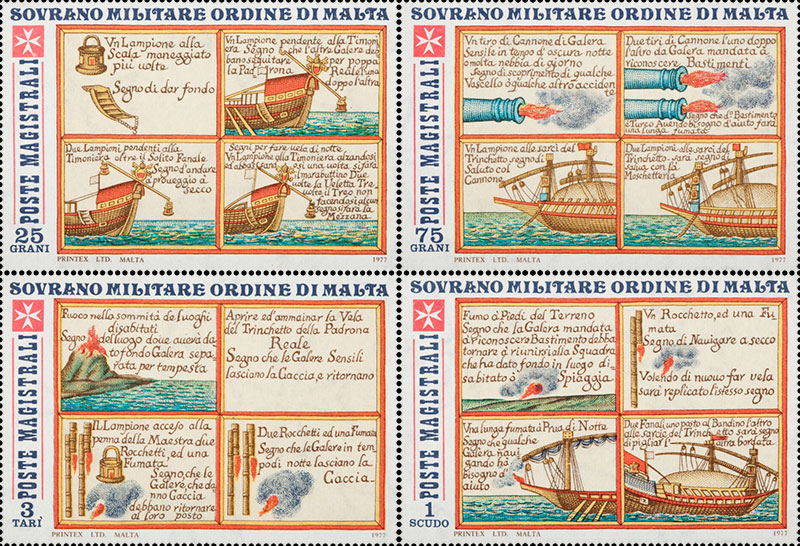 SOVRANO MILITARE ORDINE DI MALTA
POSTE MAGISTRALI
25
GRANI
Vn Lampione alla
Scala maneggiato
più uolte
Segno di dar fondo
Vn Lampione pendente alla Timoni
era Segno che l'altra Galera deb
bano seguitare per poppa
la Padrona Reale l'una
doppo l'altra
Due Lampioni pendenti alla
Timoniera oltre il Solito Fanale
Segno d'andare
a prueggio à
secco
Segni per fare uela di notte
Vn Lampione alla Timoniera alzandosi
ed abbassandosi una uolta si farà
il marabuttino Due
uolte la Veletta Tre
uolte il Treo non
facendosi alcun
Segno si farà la
Mezzana
PRINTEX LTD. MALTA
1977
SOVRANO MILITARE ORDINE DI MALTA
POSTE MAGISTRALI
75
GRANI
Vn tiro di Cannone di Galera
Sensile in tempo d'oscura notte
o molta nebbia di giorno
Segno di scoprimento di qualche
Vascello ò qualche altro accidente
Due tiri di Cannone l'uno doppo
l'altro da Galera mandata à
riconoscere Bastimenti
Segno che d.º Bastimento
è Turco Auendo bisogno d'aiuto farà
una lunga fumata
Vn Lampione alle sarci del
Trinchetto segno di
Saluto col
Cannone
Due Lampioni alle sarci del
Trinchetto sarà segno di
Salua con la
Moschetteria
PRINTEX LTD. MALTA
1977
SOVRANO MILITARE ORDINE DI MALTA
POSTE MAGISTRALI
3
TARÌ
Fuoco nella sommità de luoghi
disabitati
Segno del luogo doue auerà da
to fondo Galera sepa
rata per tempesta
Aprire ed ammainar la Vela
del Trinchetto della Padrona
Reale
Segno che le Galere Sensili
lasciano la Caccia, e ritornano
Il Lampione acceso alla
penna della Maestra due
Rocchetti ed una
Fumata
Segno che le
Galere che da
nno Caccia
debbano ritornare
al loro posto
Due Rocchetti ed una Fumata
Segno che le Galere in tem
po di notte lasciano la
Caccia
PRINTEX LTD. MALTA
1977
SOVRANO MILITARE ORDINE DI MALTA
POSTE MAGISTRALI
1
SCUDO
Fumo à Piedi del Terreno
Segno che la Galera mandata
à riconoscere Bastimento debba
tornare à riunirsi alla Squadra
che ha dato fondo in luogo di
sabitato ò Spiaggia
Vn Rocchetto, ed una Fu
mata
Segno di Nauigare a secco
Volendo di nuouo far vela
sarà replicato l'istesso segno
Vna lunga fumata à Prua di Notte
Segno che qualche
Galera nau
igando ha
bisogno d'
aiuto
Due Fanali uno posto al Bandino l'altro
alle sarcie del Trinchetto sarà segno
di pigliar l'altra bordata
PRINTEX LTD. MALTA
1977